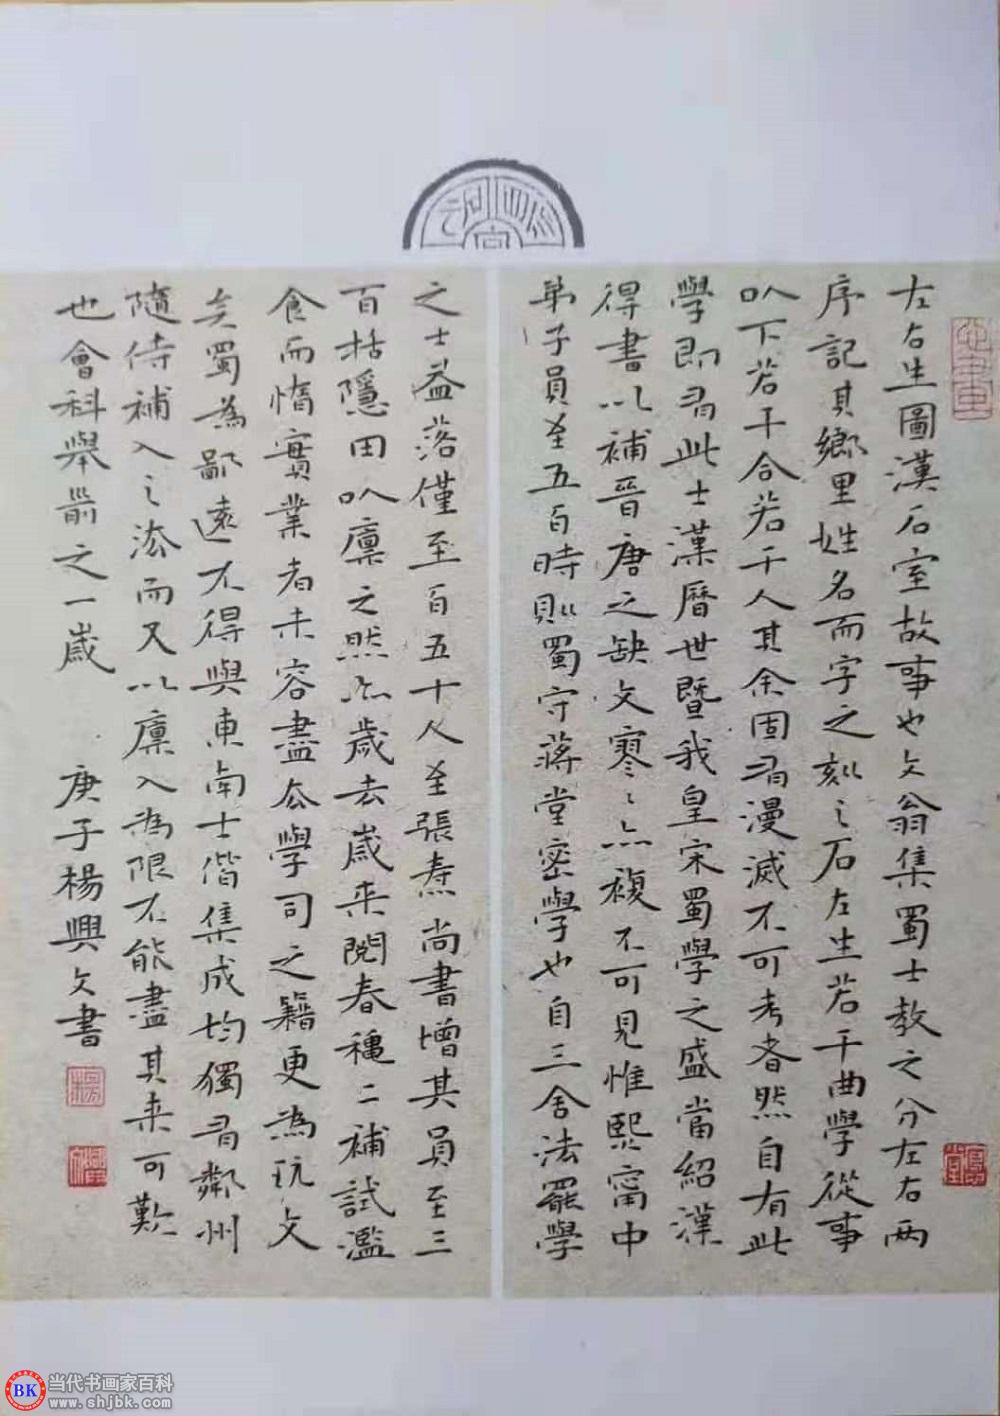 左右生圖漢石室故事也文翁集蜀士教之分左右两
序記其鄉里姓名而字之刻之石左生若干曲學從事
以下若干合若干人其余固有漫滅不可考者然自有此
學即有此士漢曆世暨我皇宋蜀學之盛當紹漢
得書以補晋唐之缺文寥〻亦複不可見惟熙甯中
弟子員至五百時則蜀守蔣堂密學也自三舍法罷學
之士益落僅至百五十人至張燾尚書增其員至三
百括隱田以廩之然亦歲去歲来閱春穐二補試濫
食而惰實業者未容盡公學司之籍更為玩文
矣蜀為鄙遠不得與東南士偕集成均獨有鄰州
隨侍補入之法而又以廩入為限不能盡其来可歎
也會科舉前之一歲 庚子楊興文書
楊
BK
当代书画家百科
www.shjbk.com